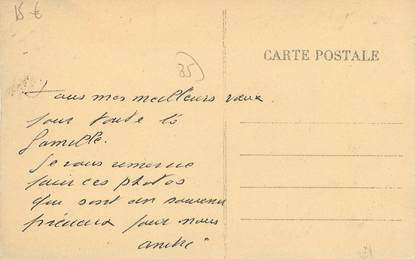 15 €
35
CARTE POSTALE
Tous mes meilleurs vœux
pour toute la
famille.
Je vous remercie
pour ces photos
qui sont un souvenir
précieux pour nous
André